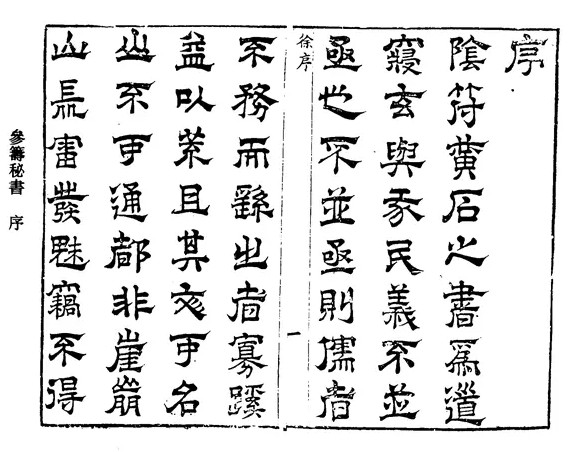 序
陰符黃石之書爲道
寢玄與民義不並
亟也不並亟則儒者
徐序
一
不務而繇㞢者寡蹊
益以荒且其文可名
山不可通都非崖崩
山雷發魅竊不得
參籌秘書 序